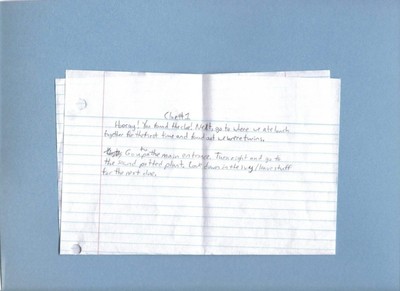 Clue #1
Hooray! You found the clue! Next, go to where we ate lunch
together for the first time and found out we were twins.
Go to the main entrance. Turn right and go to
the round potted plant. Look down in the
for the next clue.